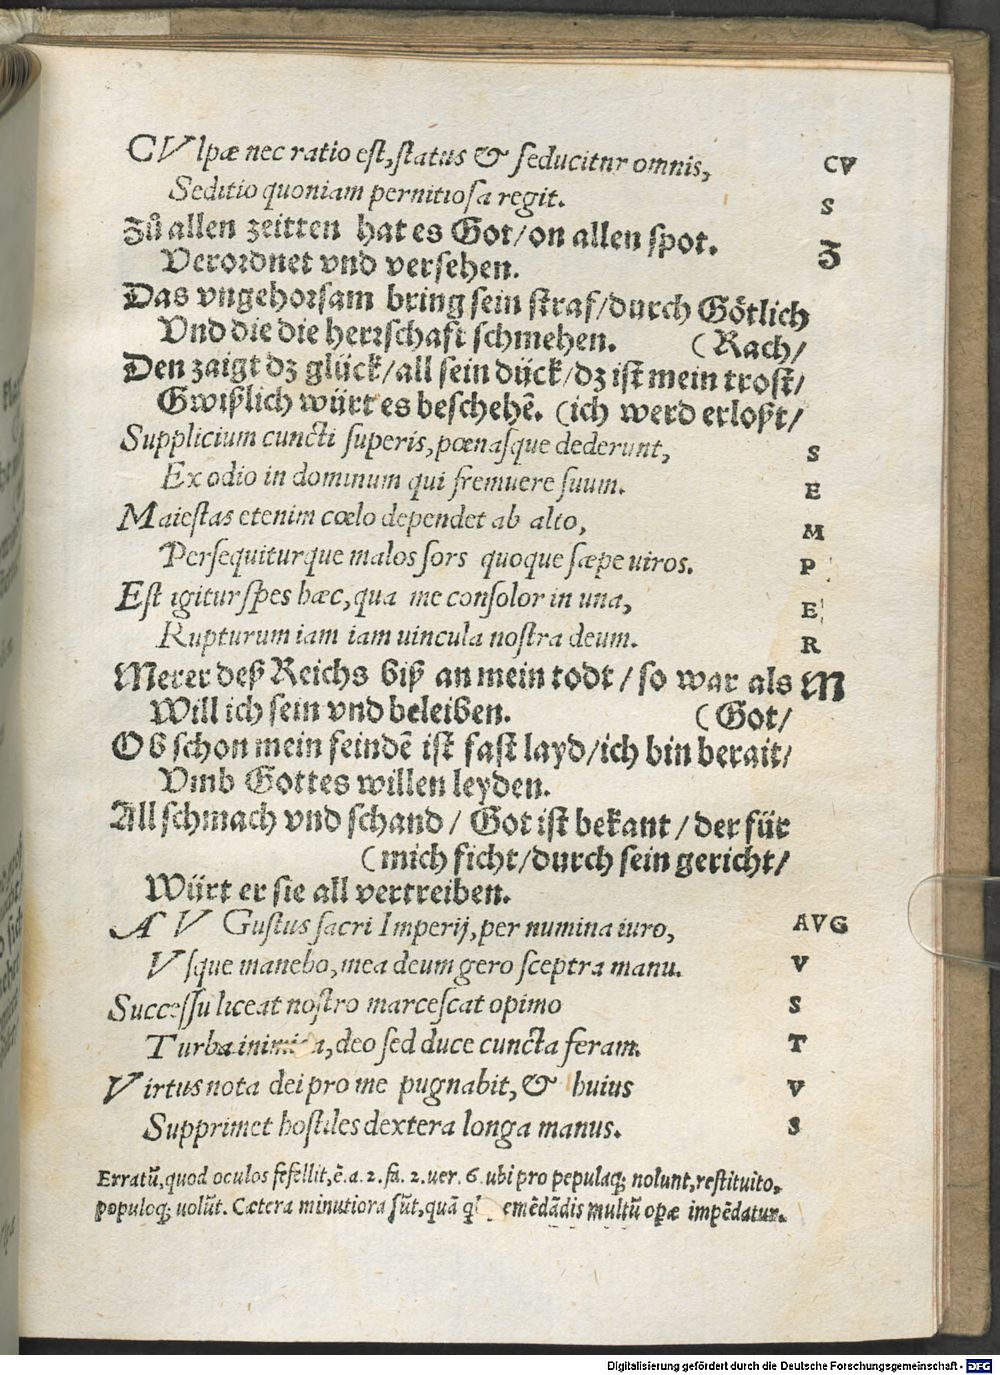 CVlpæ nec ratio est, status & seducitur omnis, CV
Seditio quoniam pernitiosa regit. S
Zů allen zeitten hat es Got/on allen spot. Z
Verordnet vnd versehen.
Das vngehorsam bring sein straf/durch Götlich
Vnd die die herrschaft schmehen. (Rach/
Den zaigt dz glück/all sein dück/dz ist mein trost/
Gwißlich würt es beschehē. (ich werd erloßt/
Supplicium cuncti superis, pœnasque dederunt, S
Ex odio in dominum qui fremuere suum. E
Maiestas etenim cœlo dependet ab alto, M
Persequiturque malos sors quoque sæpe uiros. P
Est igitur spes hæc, qua me consolor in una, E
Rupturum iam iam uincula nostra deum. R
Merer deß Reichs biß an mein todt/so war als M
Will ich sein vnd beleiben. (Got/
Ob schon mein feindē ist fast layd/ich bin berait/
Vmb Gottes willen leyden.
All schmach vnd schand/ Got ist bekant/der für
(mich ficht/durch sein gericht/
Würt er sie all vertreiben.
AV Gustus sacri Imperij, per numina iuro, AVG
Vsque manebo, mea deum gero sceptra manu. V
Successu liceat nostro marcescat opimo S
Turba inimica, deo sed duce cuncta feram. T
Virtus nota dei pro me pugnabit, & huius V
Supprimet hostiles dextera longa manus. S
Erratū, quod oculos fefellit, ē. a. 2. fa. 2. uer. 6. ubi pro pepulaq; nolunt, restituito,
populoq; uolūt. Cætera minutiora sūt, quā emēdādis multū opæ impēdatur.
Digitalisierung gefördert durch die Deutsche Forschungsgemeinschaft - DFG